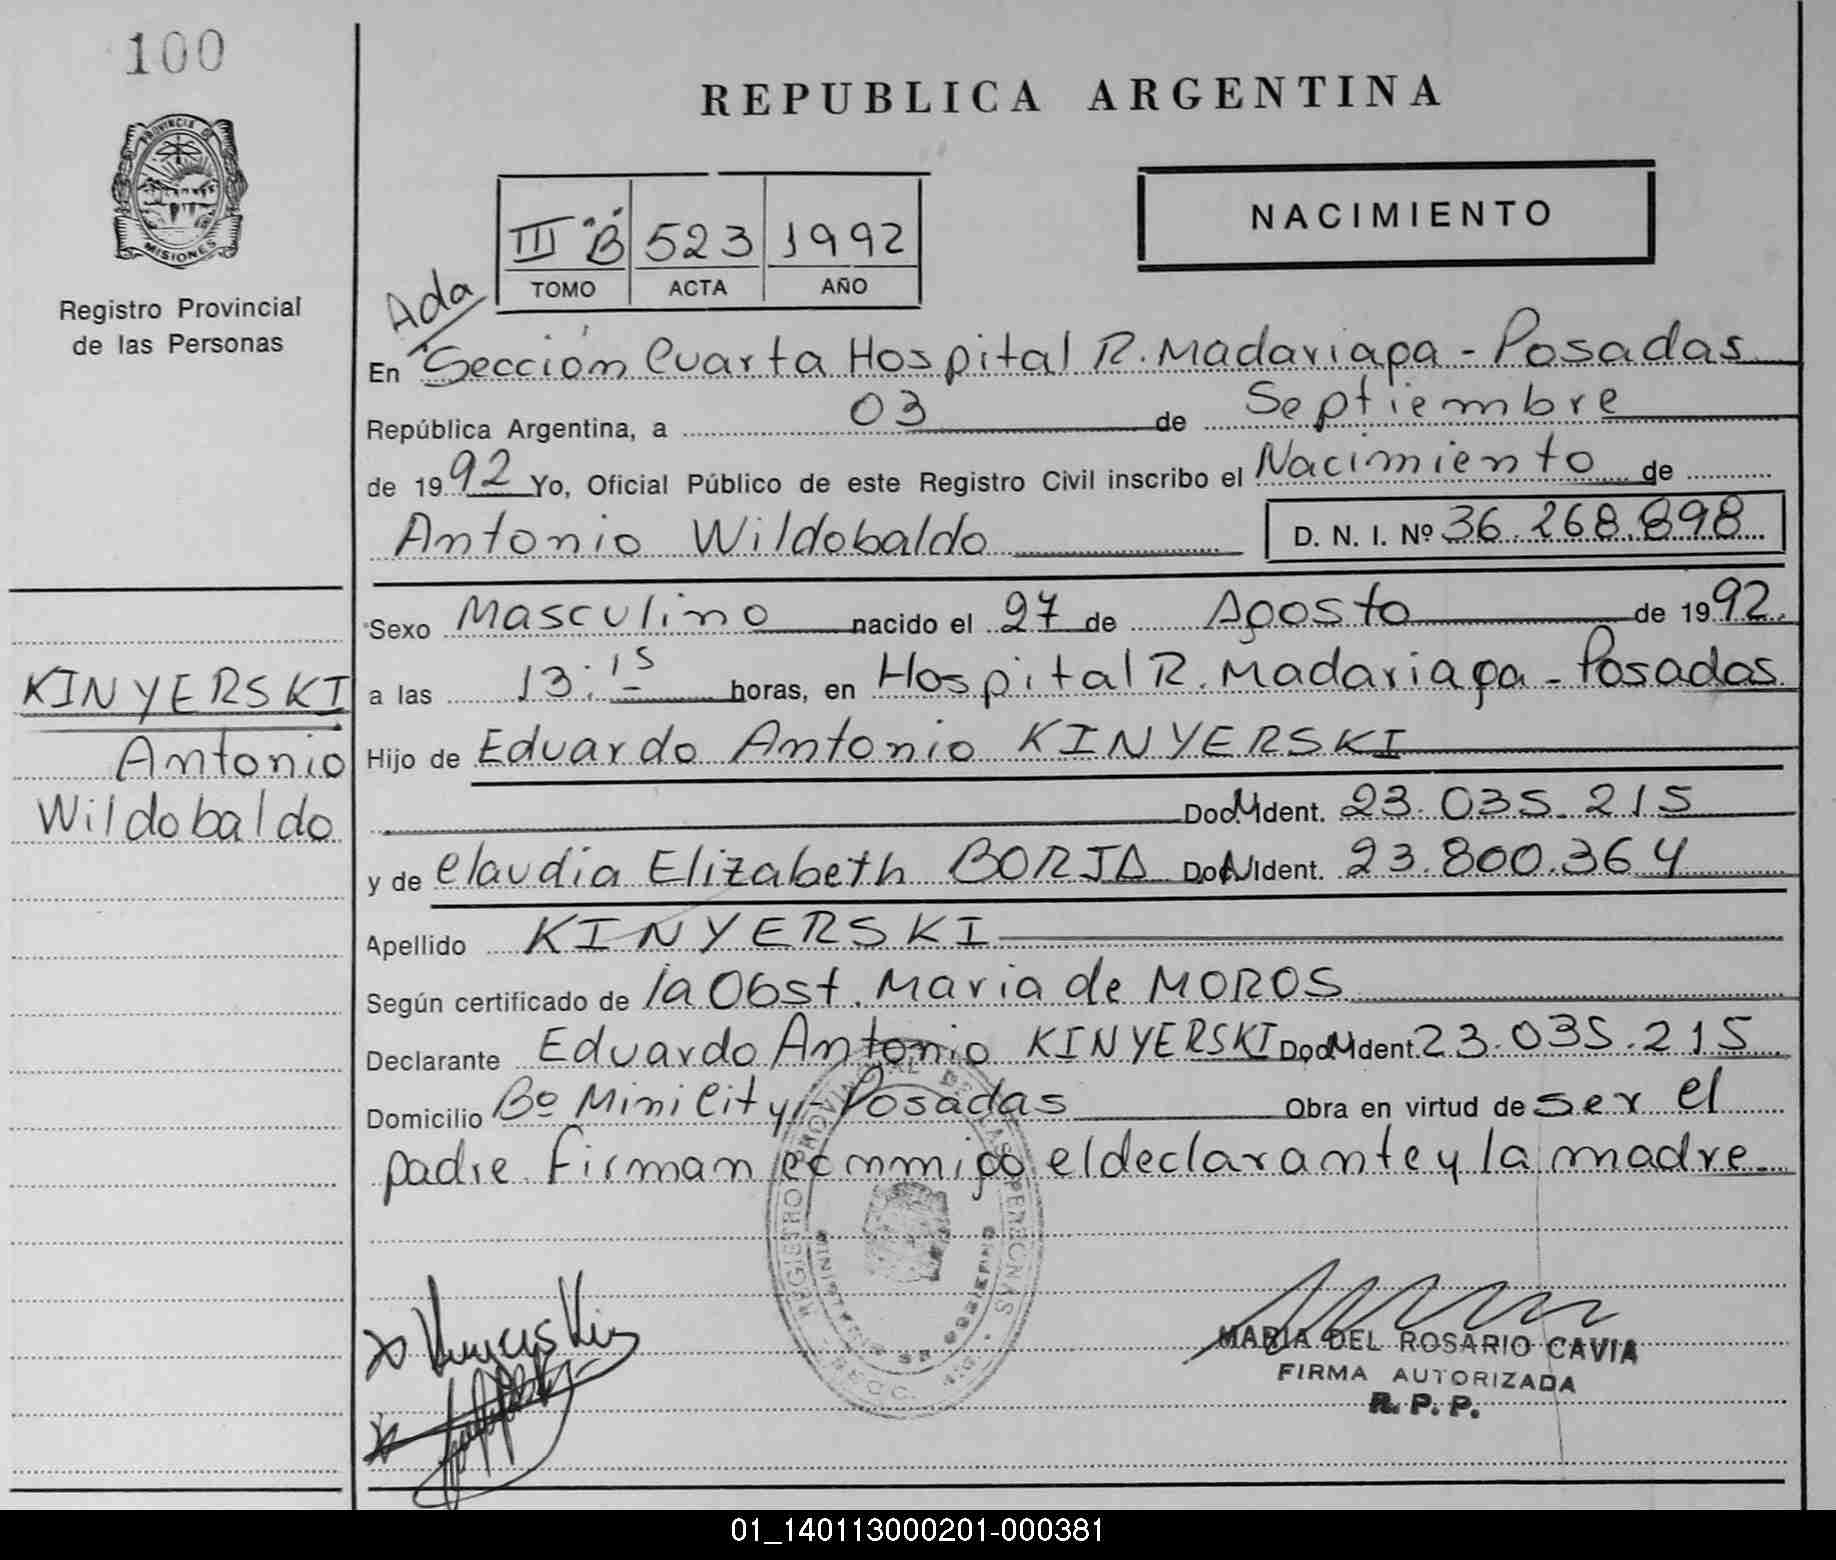 100
PROVINCIA DE
MISIONES
Registro Provincial
de las Personas
REPUBLICA ARGENTINA
NACIMIENTO
III "B" 523 1992
TOMO ACTA AÑO
Ada
En Sección Cuarta Hospital R. Madariaga - Posadas
República Argentina, a 03 de Septiembre
de 1992 Yo, Oficial Público de este Registro Civil inscribo el Nacimiento de
Antonio Wildobaldo D. N. I. Nº 36.268.898
Sexo Masculino nacido el 27 de Agosto de 1992.
a las 13:15 horas, en Hospital R. Madariaga - Posadas
Hijo de Eduardo Antonio KINYERSKI
Doc. Ident. 23.035.215
y de Claudia Elizabeth BORJA Doc. Ident. 23.800.364
Apellido KINYERSKI
Según certificado de la Obst. Maria de MOROS
Declarante Eduardo Antonio KINYERSKI Doc. Ident. 23.035.215
Domicilio Bº Mini City - Posadas Obra en virtud de ser el
padre. Firman conmigo el declarante y la madre
KINYERSKI
Antonio
Wildobaldo
REGISTRO PROVINCIAL DE LAS PERSONAS
MARIA DEL ROSARIO CAVIA
FIRMA AUTORIZADA
R. P. P.
01_140113000201-000381